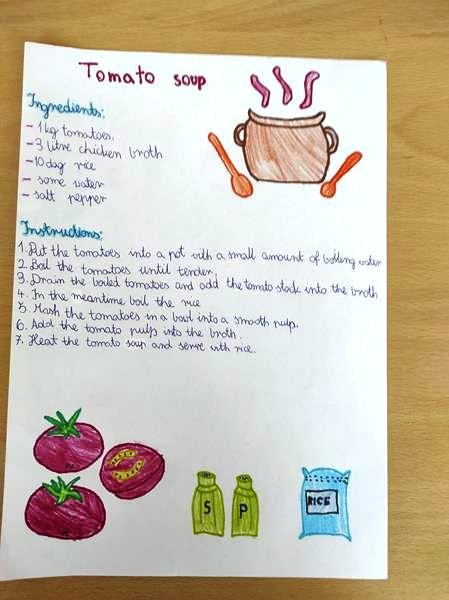 Tomato soup
Ingredients:
- 1 kg tomatoes.
- 3 litre chicken broth
- 10 dag rice
- some water
- salt pepper
Instructions:
1. Put the tomatoes into a pot with a small amount of boiling water
2. Boil the tomatoes until tender.
3. Drain the boiled tomatoes and add the tomato stock into the broth.
4. In the meantime boil the rice
5. Mash the tomatoes in a bowl into a smooth pulp.
6. Add the tomato pulp into the broth.
7. Heat the tomato soup and serve with rice.
S P
RICE